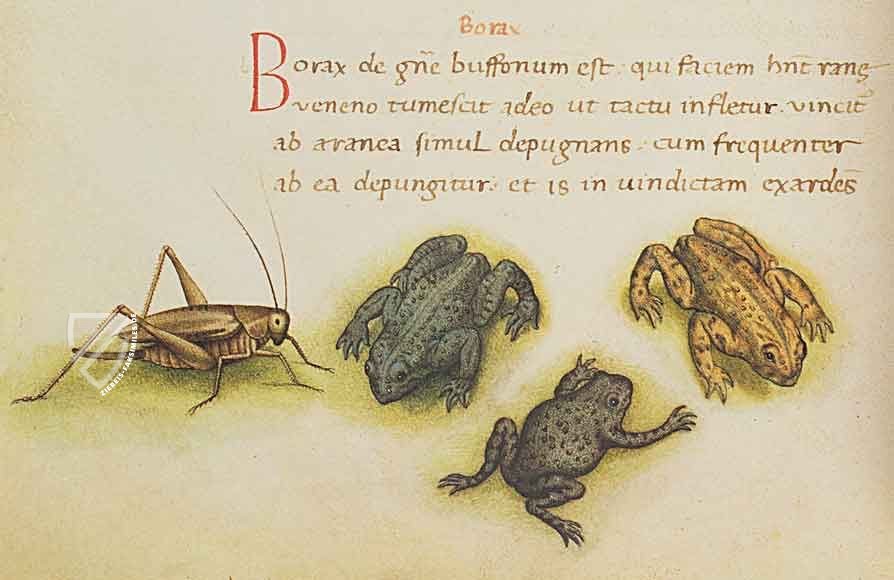 Borax
Borax de gñe buffonum est. qui faciem hñt ranę
veneno tumescit adeo ut tactu infletur. vincit
ab aranea simul depugnans. cum frequenter
ab ea depungitur. et is in uindictam exardēs
ZIEREIS-FAKSIMILES.DE